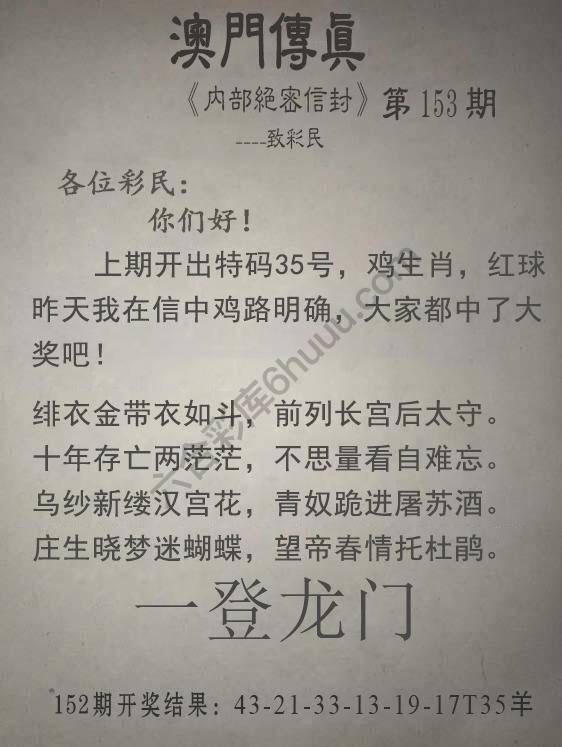 澳門傳眞
《内部絕密信封》第153期
----致彩民
各位彩民：
你们好！
上期开出特码35号，鸡生肖，红球
昨天我在信中鸡路明确，大家都中了大
奖吧！
绯衣金带衣如斗，前列长宫后太守。
十年存亡两茫茫，不思量看自难忘。
乌纱新缕汉宫花，青奴跪进屠苏酒。
庄生晓梦迷蝴蝶，望帝春情托杜鹃。
一登龙门
152期开奖结果：43-21-33-13-19-17T35羊
六合彩库6huuu.com